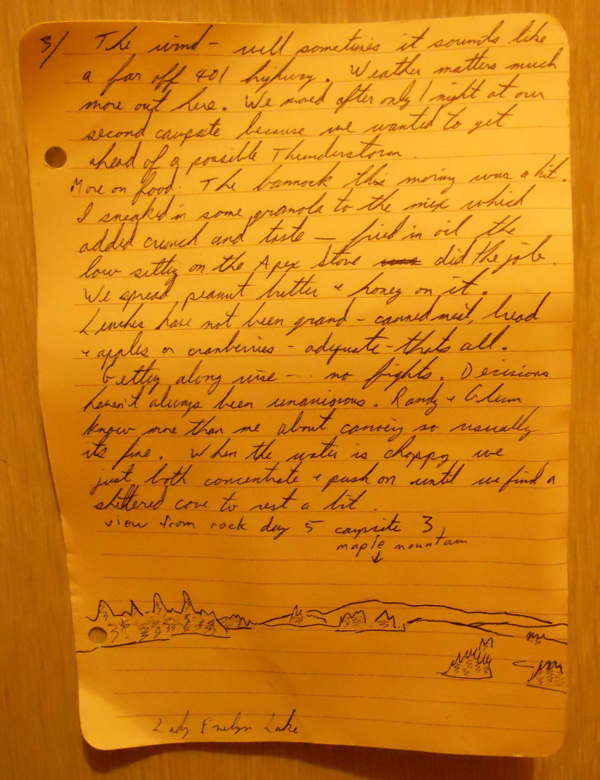 3/ The wind - well sometimes it sounds like
a far off 401 highway. Weather matters much
more out here. We moved after only 1 night at our
second campsite because we wanted to get
ahead of a possible Thunderstorm.
More on food: The bannock this morning was a hit.
I sneaked in some granola to the mix which
added crunch and taste - fried in oil the
low setting on the Apex stove did the job.
We spread peanut butter + honey on it.
Lunches have not been grand - canned meat, bread
+ apples or cranberries - adequate - thats all.
Getting along wise - no fights. Decisions
haven't always been unanimous. Randy + Glenn
know more than me about canoeing so usually
its fine. When the water is choppy we
just both concentrate + push on until we find a
sheltered cove to rest a bit.
view from rock day 5 campsite 3
maple mountain
Lady Evelyn Lake